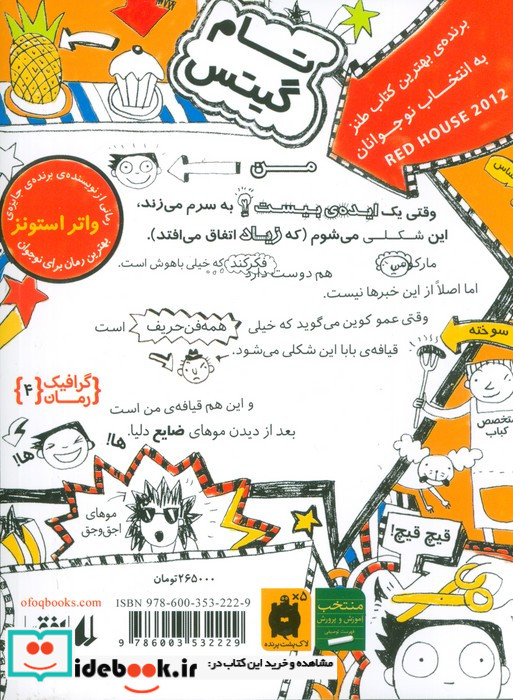 تام
گیتس
برنده‌ی بهترین کتاب طنز
به انتخاب نوجوانان
RED HOUSE 2012
من
رمانی از نویسنده‌ی برنده‌ی جایزه‌ی
واتر استونز
بهترین رمان برای نوجوان
وقتی یک ایده‌ی بیست به سرم می‌زند،
این شکلی می‌شوم (که زیاد اتفاق می‌افتد).
مارکوس هم دوست دارد فکر کند که خیلی باهوش است.
اما اصلاً از این خبرها نیست.
وقتی عمو کوین می‌گوید که خیلی همه‌فن‌حریف است
قیافه‌ی بابا این شکلی می‌شود.
سوخته
متخصص
کباب
گرافیک
رمان
۴
و این هم قیافه‌ی من است
بعد از دیدن موهای ضایع دلیا.
ها!
ها!
موهای
اجق‌وجق
قیچ قیچ!
۲۶۵۰۰۰ تومان
ofoqbooks.com
ISBN 978-600-353-222-9
9 786003 532229
۵×
لاک‌پشت پرنده
منتخب
آموزش و پرورش
مشاهده و خرید این کتاب در:
idebook.ir